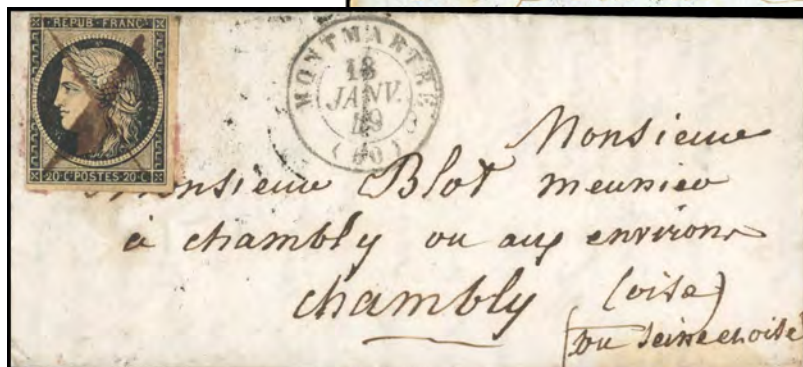 REPUB. FRANC.
20·C·POSTES·20·C
MONTMARTRE
18
JANV.
49
(60)
Monsieur
Monsieur Blot meunier
à chambly ou aux environs
chambly (oise)
ou seine et oise